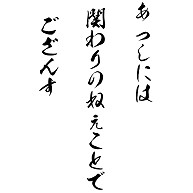 あっしには
関わりのねえことで
ござんす